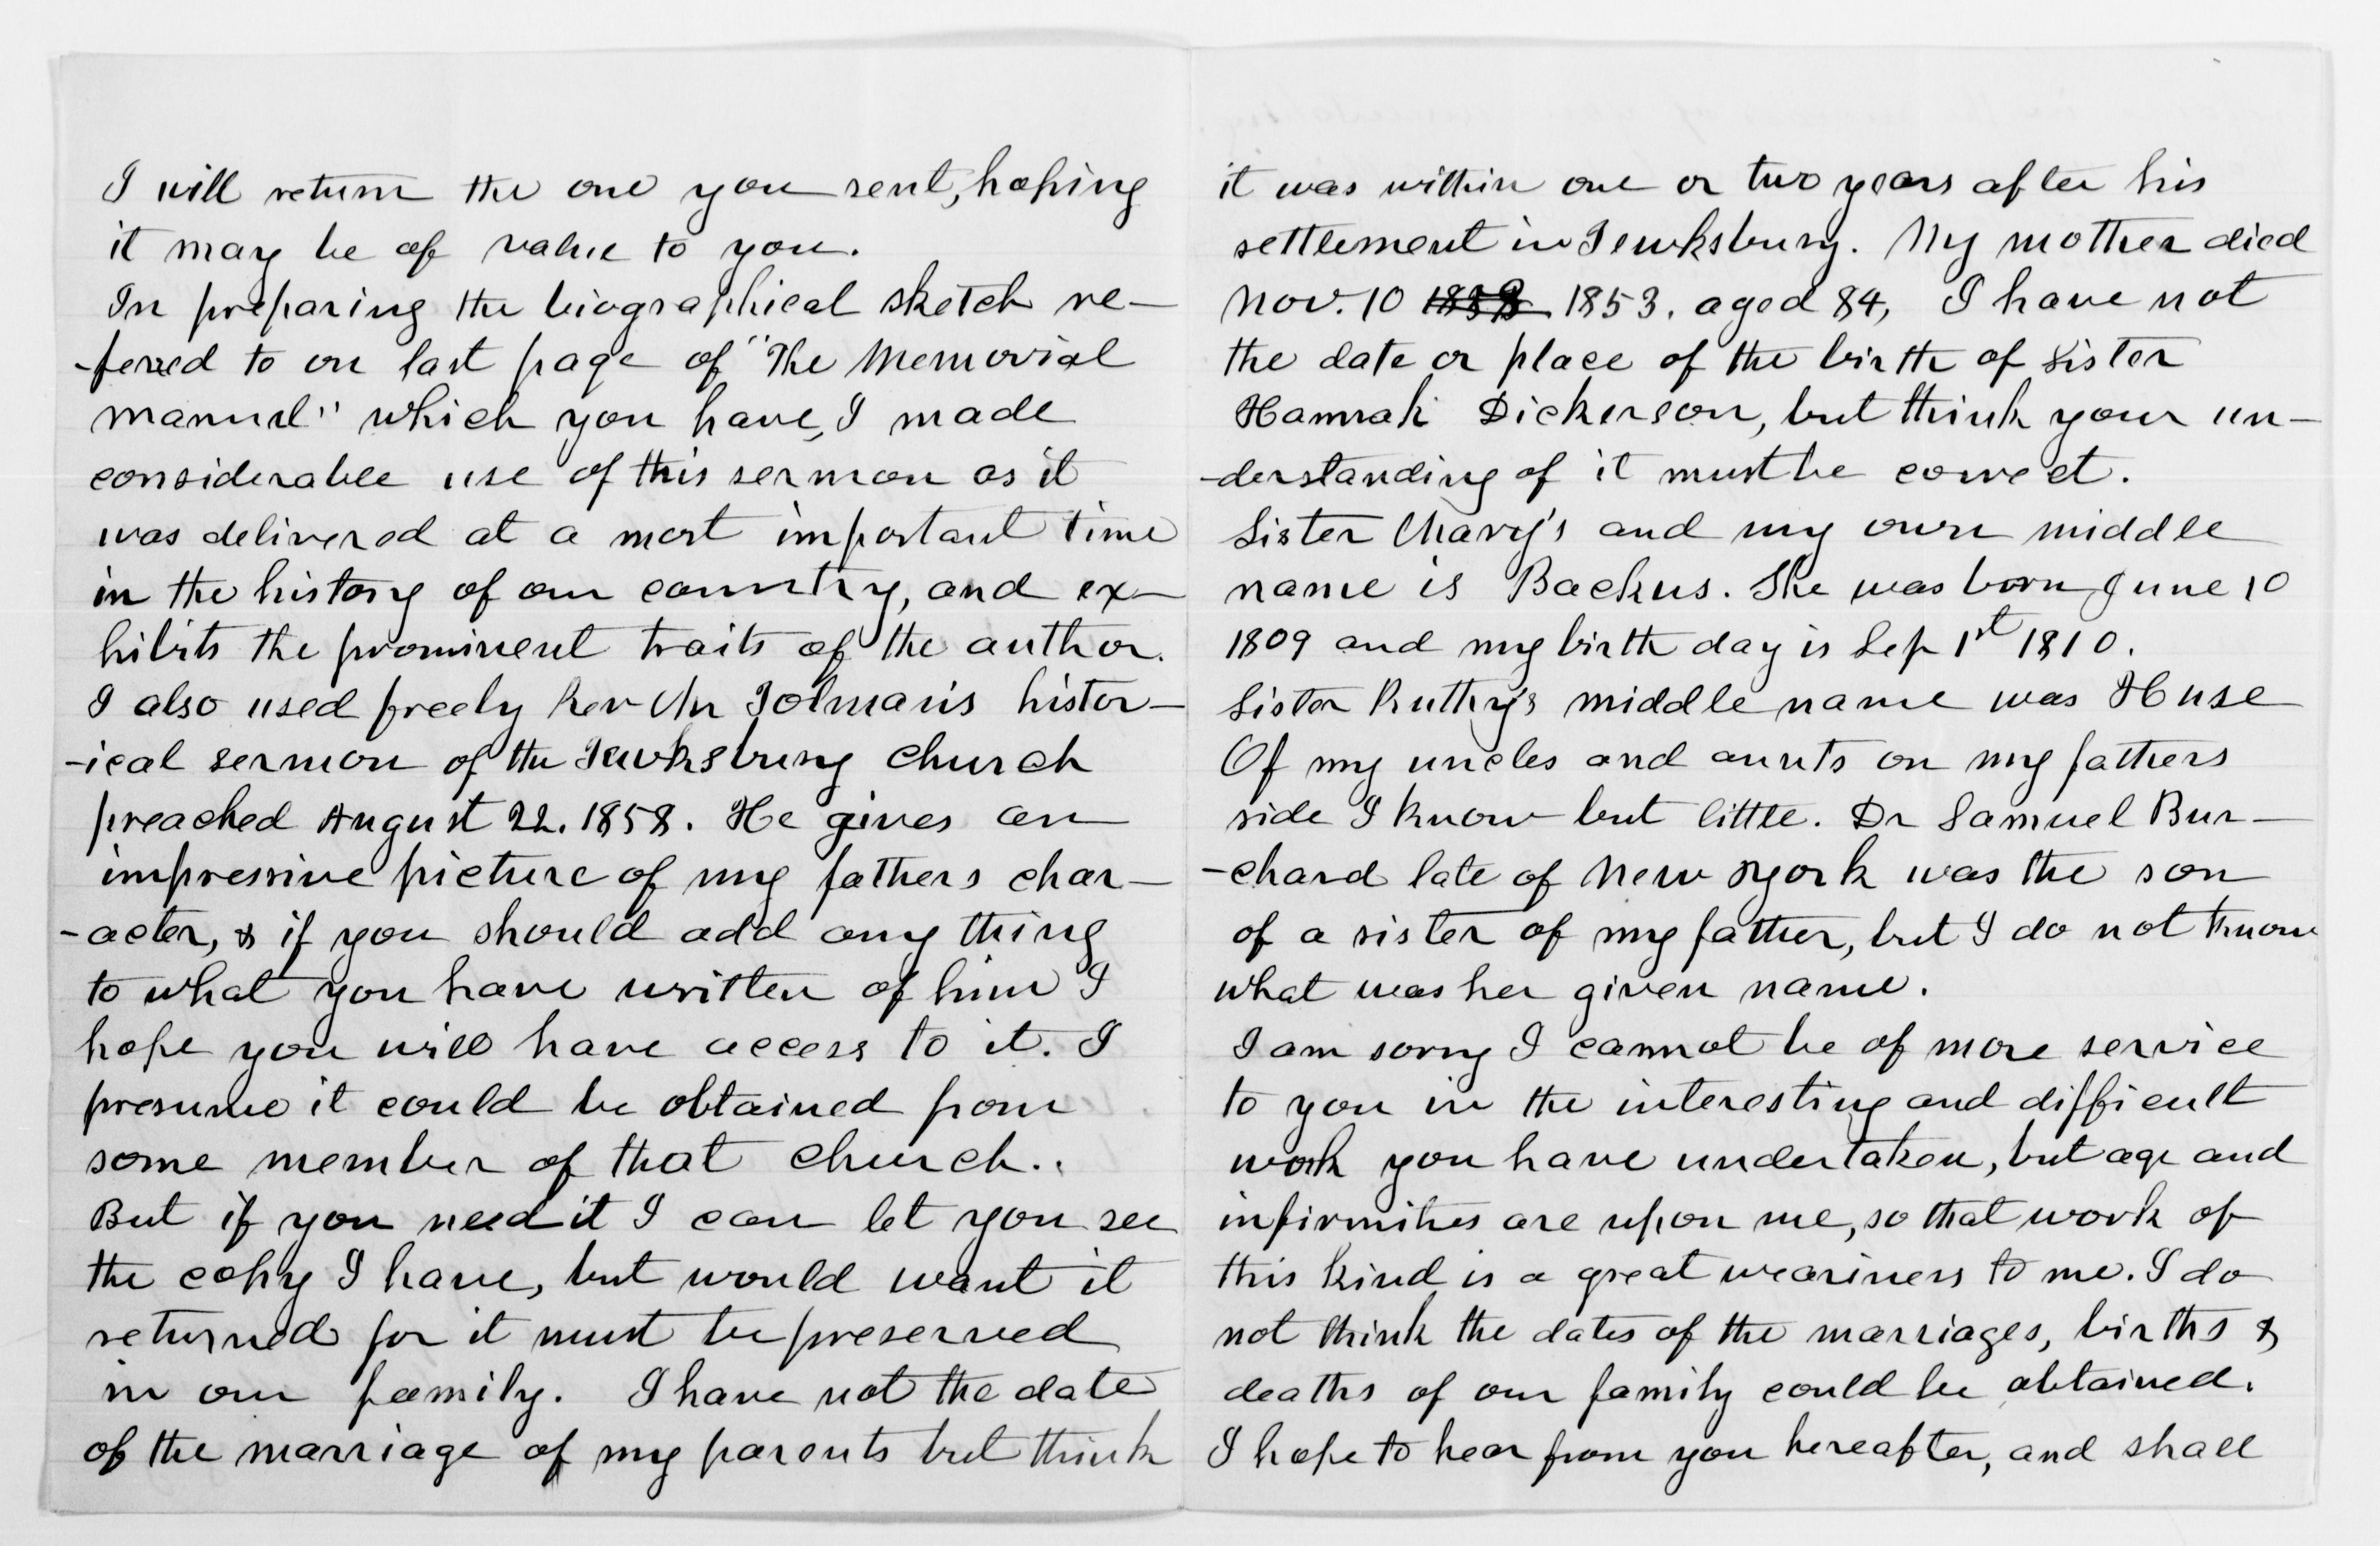 I will return the one you sent, hoping
it may be of value to you.
In preparing the biographical sketch re-
-ferred to on last page of "The Memorial
manual" which you have, I made
considerable use of this sermon as it
was delivered at a most important time
in the history of our country, and ex-
hibits the prominent traits of the author.
I also used freely Rev Mr Tolman's histor-
-ical sermon of the Tewksbury church
preached August 22. 1858. He gives an
impressive picture of my fathers char-
-acter, & if you should add any thing
to what you have written of him I
hope you will have access to it. I
presume it could be obtained from
some member of that church..
But if you need it I can let you see
the copy I have, but would want it
returned for it must be preserved
in our family. I have not the date
of the marriage of my parents but think
it was within one or two years after his
settlement in Tewksbury. My mother died
Nov. 10 1853. aged 84, I have not
the date or place of the birth of Sister
Hannah Dickerson, but think your un-
-derstanding of it must be correct.
Sister Mary's and my own middle
name is Backus. She was born June 10
1809 and my birth day is Sep 1st 1810.
Sister Ruthy's middle name was Huse
Of my uncles and aunts on my fathers
side I know but little. Dr Samuel Bur-
-chard late of New York was the son
of a sister of my father, but I do not know
what was her given name.
I am sorry I cannot be of more service
to you in the interesting and difficult
work you have undertaken, but age and
infirmities are upon me, so that work of
this kind is a great weariness to me. I do
not think the dates of the marriages, births &
deaths of our family could be obtained.
I hope to hear from you hereafter, and shall